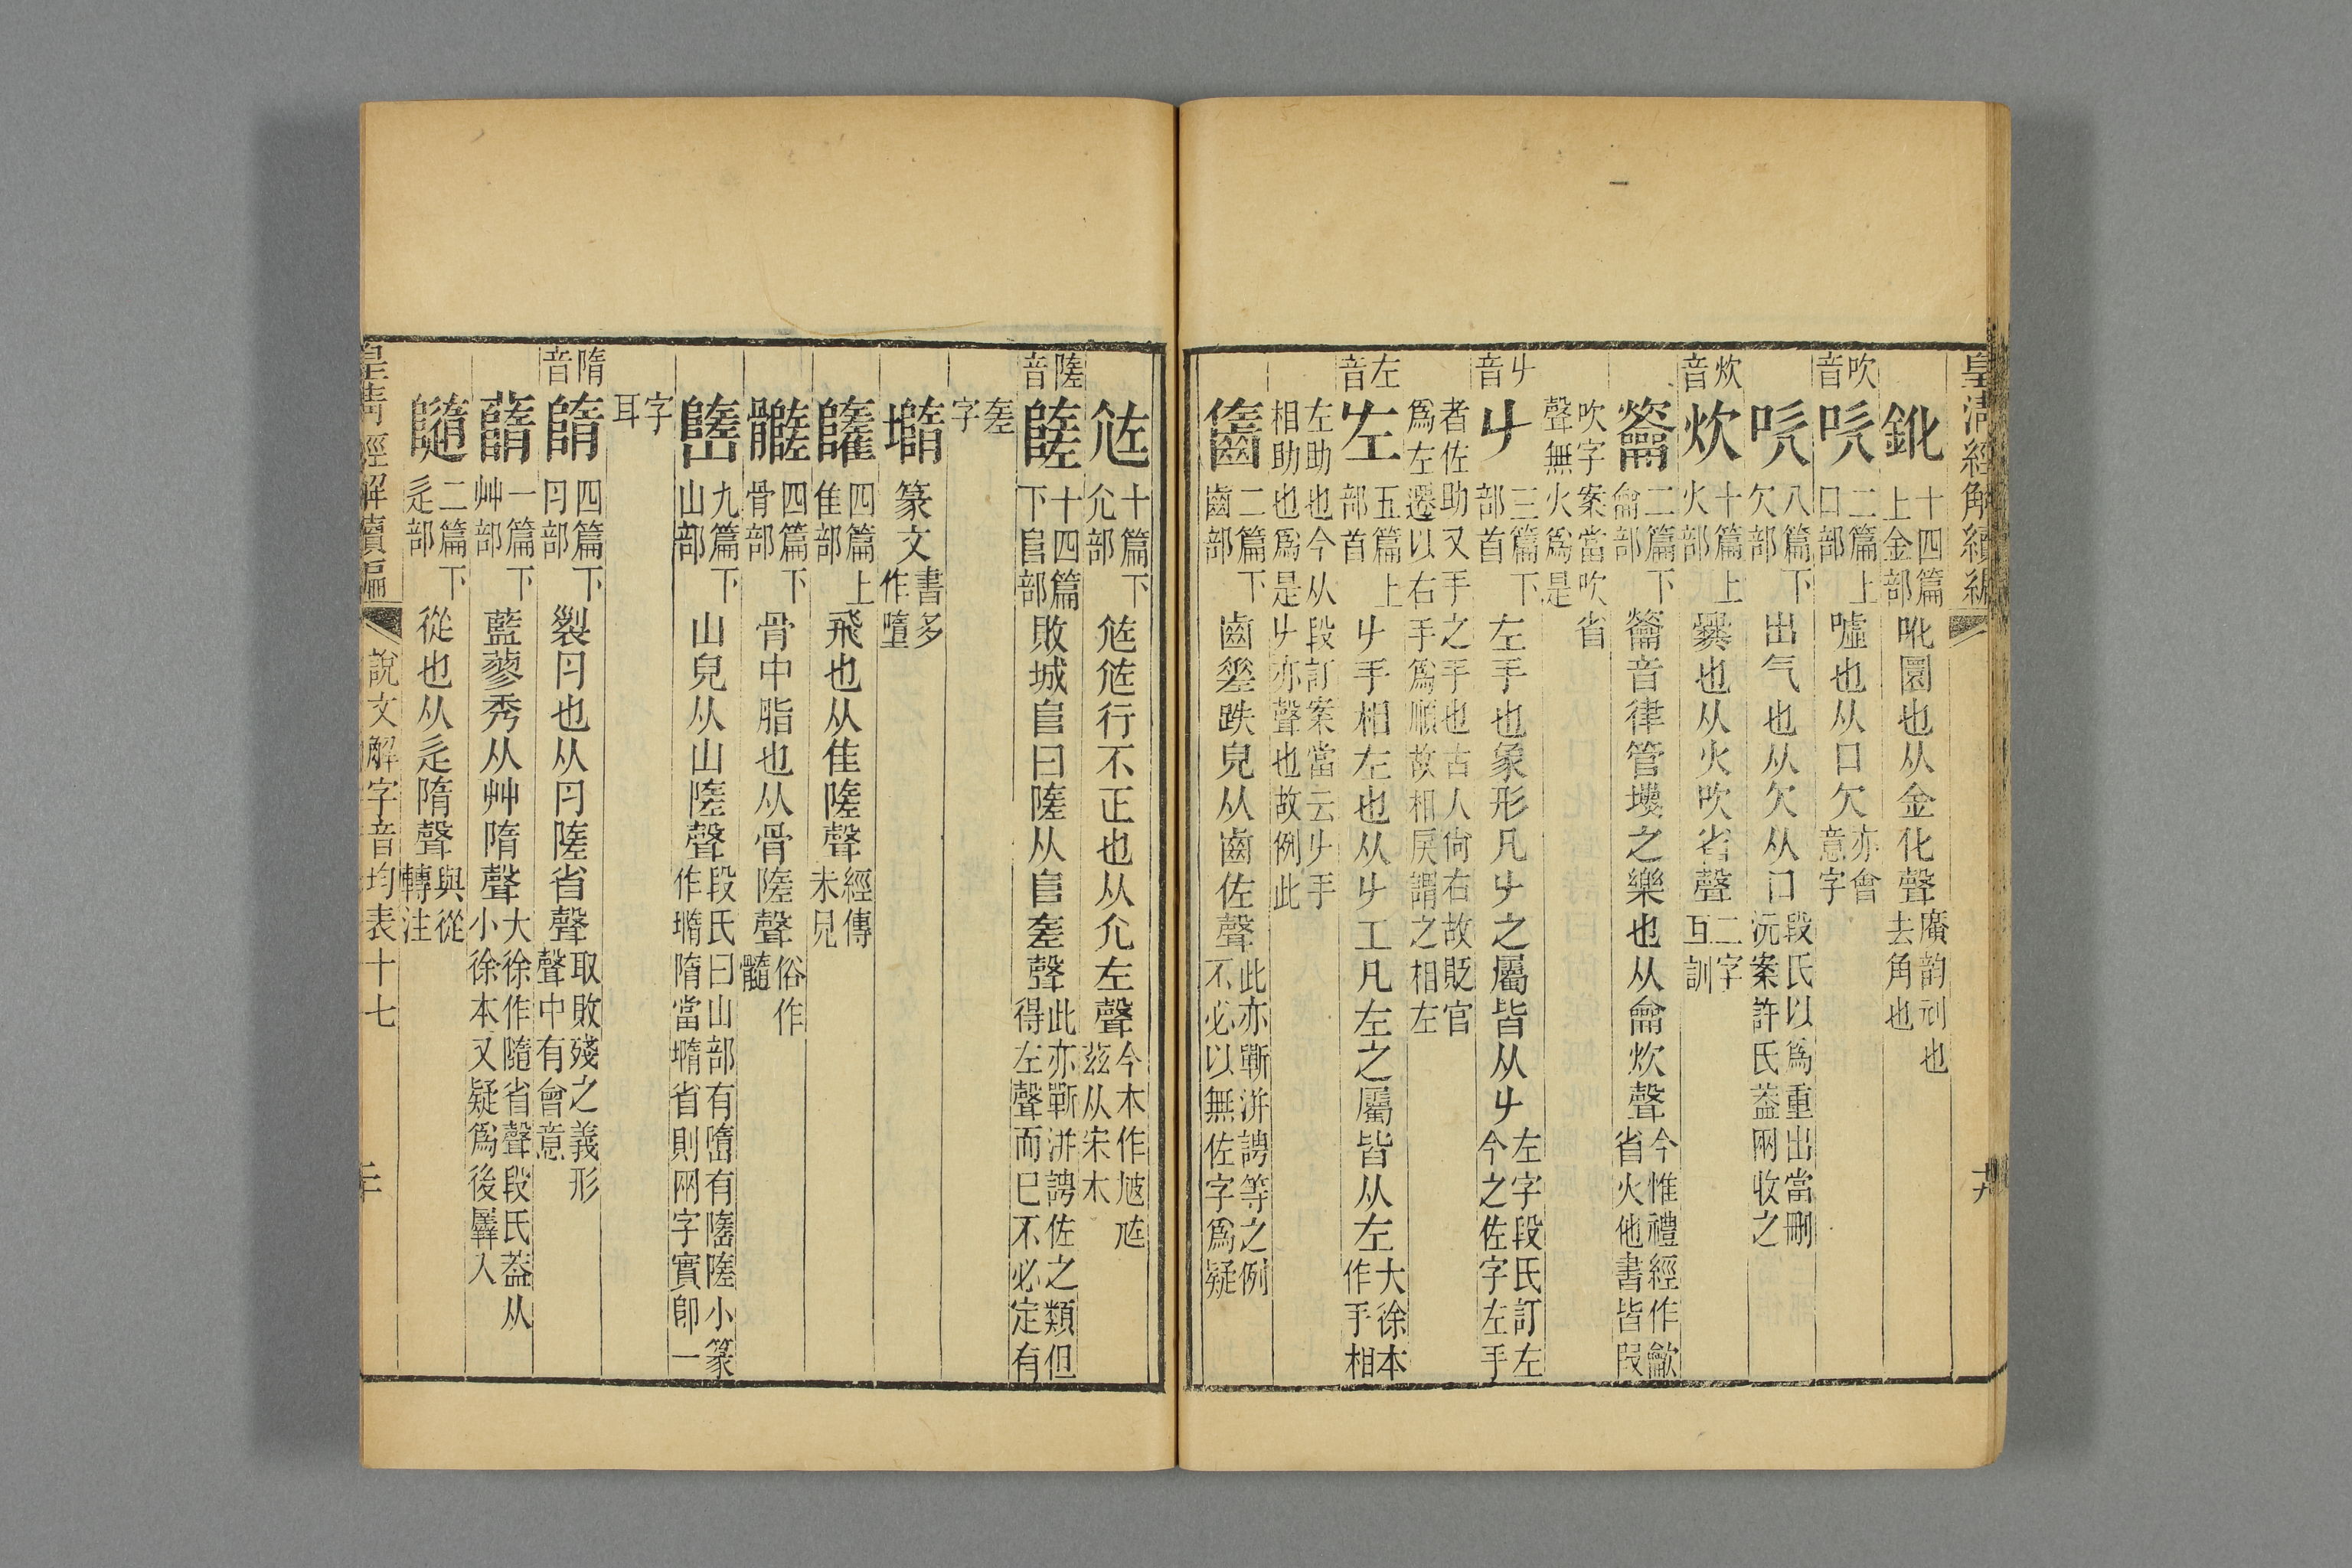 皇清經解續編
鈋 十四篇上金部 吪圜也从金化聲 廣韵刓也去角也
吹音 吹 二篇上口部 噓也从口欠 亦會意字
吹 八篇下欠部 出气也从欠从口 段氏以爲重出當刪沅案許氏葢兩收之
炊音 炊 十篇上火部 爨也从火吹省聲 二字互訓
籥 二篇下龠部 籥音律管壎之樂也从龠炊聲 今惟禮經作龡省火他書皆叚
吹字案當吹省聲無火爲是
𠂇音 𠂇 三篇下部首 左手也象形凡𠂇之屬皆从𠂇 左字段氏訂左今之佐字左手
者佐助又手之手也古人尙右故貶官爲左遷以右手爲順故相戾謂之相左
左音 左 五篇上部首 𠂇手相左也从𠂇工凡左之屬皆从左 大徐本作手相
左助也今从段訂案當云𠂇手相助也爲是𠂇亦聲也故例此
二篇下齒部 齒差跌皃从齒佐聲 此亦蘄洴諤等之例不必以無佐字爲疑
尲 十篇下尣部 尲尲行不正也从尣左聲 今本作尲尬茲从宋本
隓音 隓 十四篇下𨸏部 敗城𨸏曰隓从𨸏差聲 此亦蘄洴諤佐之類但得左聲而已不必定有
差字
墮 篆文 書多作墮
四篇上隹部 飛也从隹隓聲 經傳未見
髓 四篇下骨部 骨中脂也从骨隓聲 俗作髓
九篇下山部 山皃从山隓聲 段氏曰山部有嶞有隓隓小篆作墮隋當墮省則兩字實卽一
字耳
隋音 隋 四篇下冃部 裂冃也从冃隓省聲 取敗殘之義形聲中有會意
蓨 一篇下艸部 藍蓼秀从艸隋聲 大徐作隨省聲段氏葢从小徐本又疑爲後羼入
隨 二篇下辵部 從也从辵隋聲 與從轉注
皇淸經解續編 說文解字音均表十七